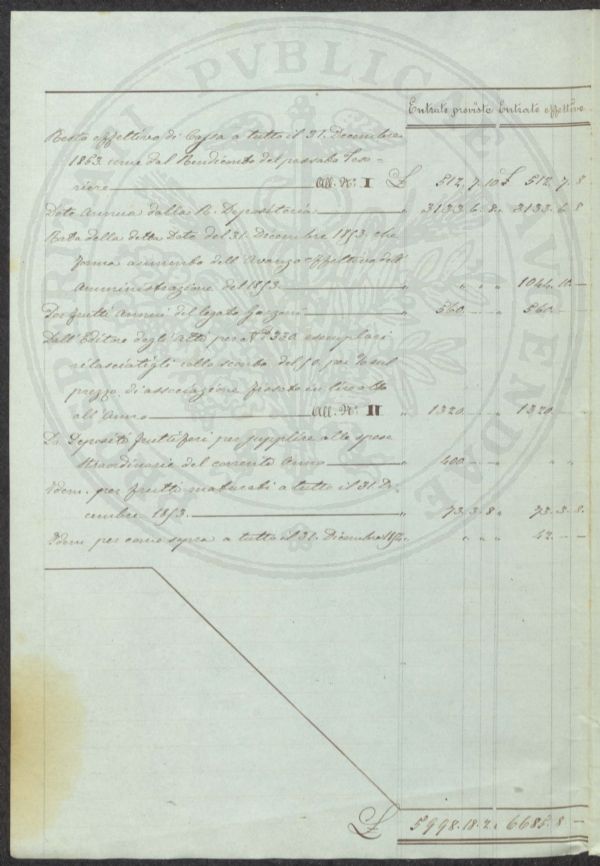 Entrate previste Entrate effettive
Resto effettivo di Cassa a tutto il 31. Decembre
1853 come dal Rendiconto del passato Teso-
riere All. N.º I £ 512. 7. 10 £ 512. 7. 8
Dote Annua dalla R. Depositeria " 3133. 6. 8. 3133. 6. 8
Rata della detta Dote del 31. Decembre 1853. che
forma aumento dell'Avanzo effettivo dell'
Amministrazione del 1853 " " " " 1044. 10. —
Dai frutti Annui del legato " 560. — 560. —
Dall'Editore degli Atti per N.º 330 esemplari
rilasciatigli collo sconto del 50. per % sul
prezzo di associazione fissato in lire otto
all'Anno All. N.º II " 1320. — 1320. —
Da Depositi fruttiferi per supplire alle spese
straordinarie del corrente Anno " 400. — " "
Idem. per frutti maturati a tutto il 31 De-
cembre 1853. " 73. 3. 8. 73. 3. 8.
Idem per come sopra a tutto il 31. Dicembre " " " 42. —
£ 5998. 18. 2. 6685. 8 —